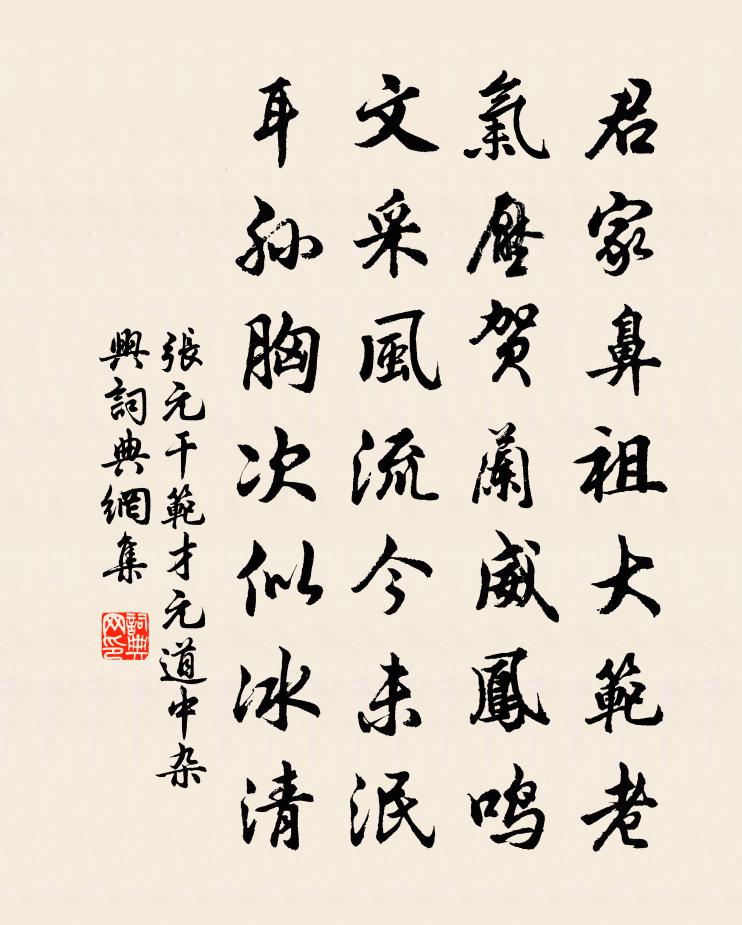 君家鼻祖大範老
氣壓賀蘭威鳳鳴
文采風流今未泯
耳孙胸次似冰清
張元干範才元道中杂
興詞典網集
詞典
网印